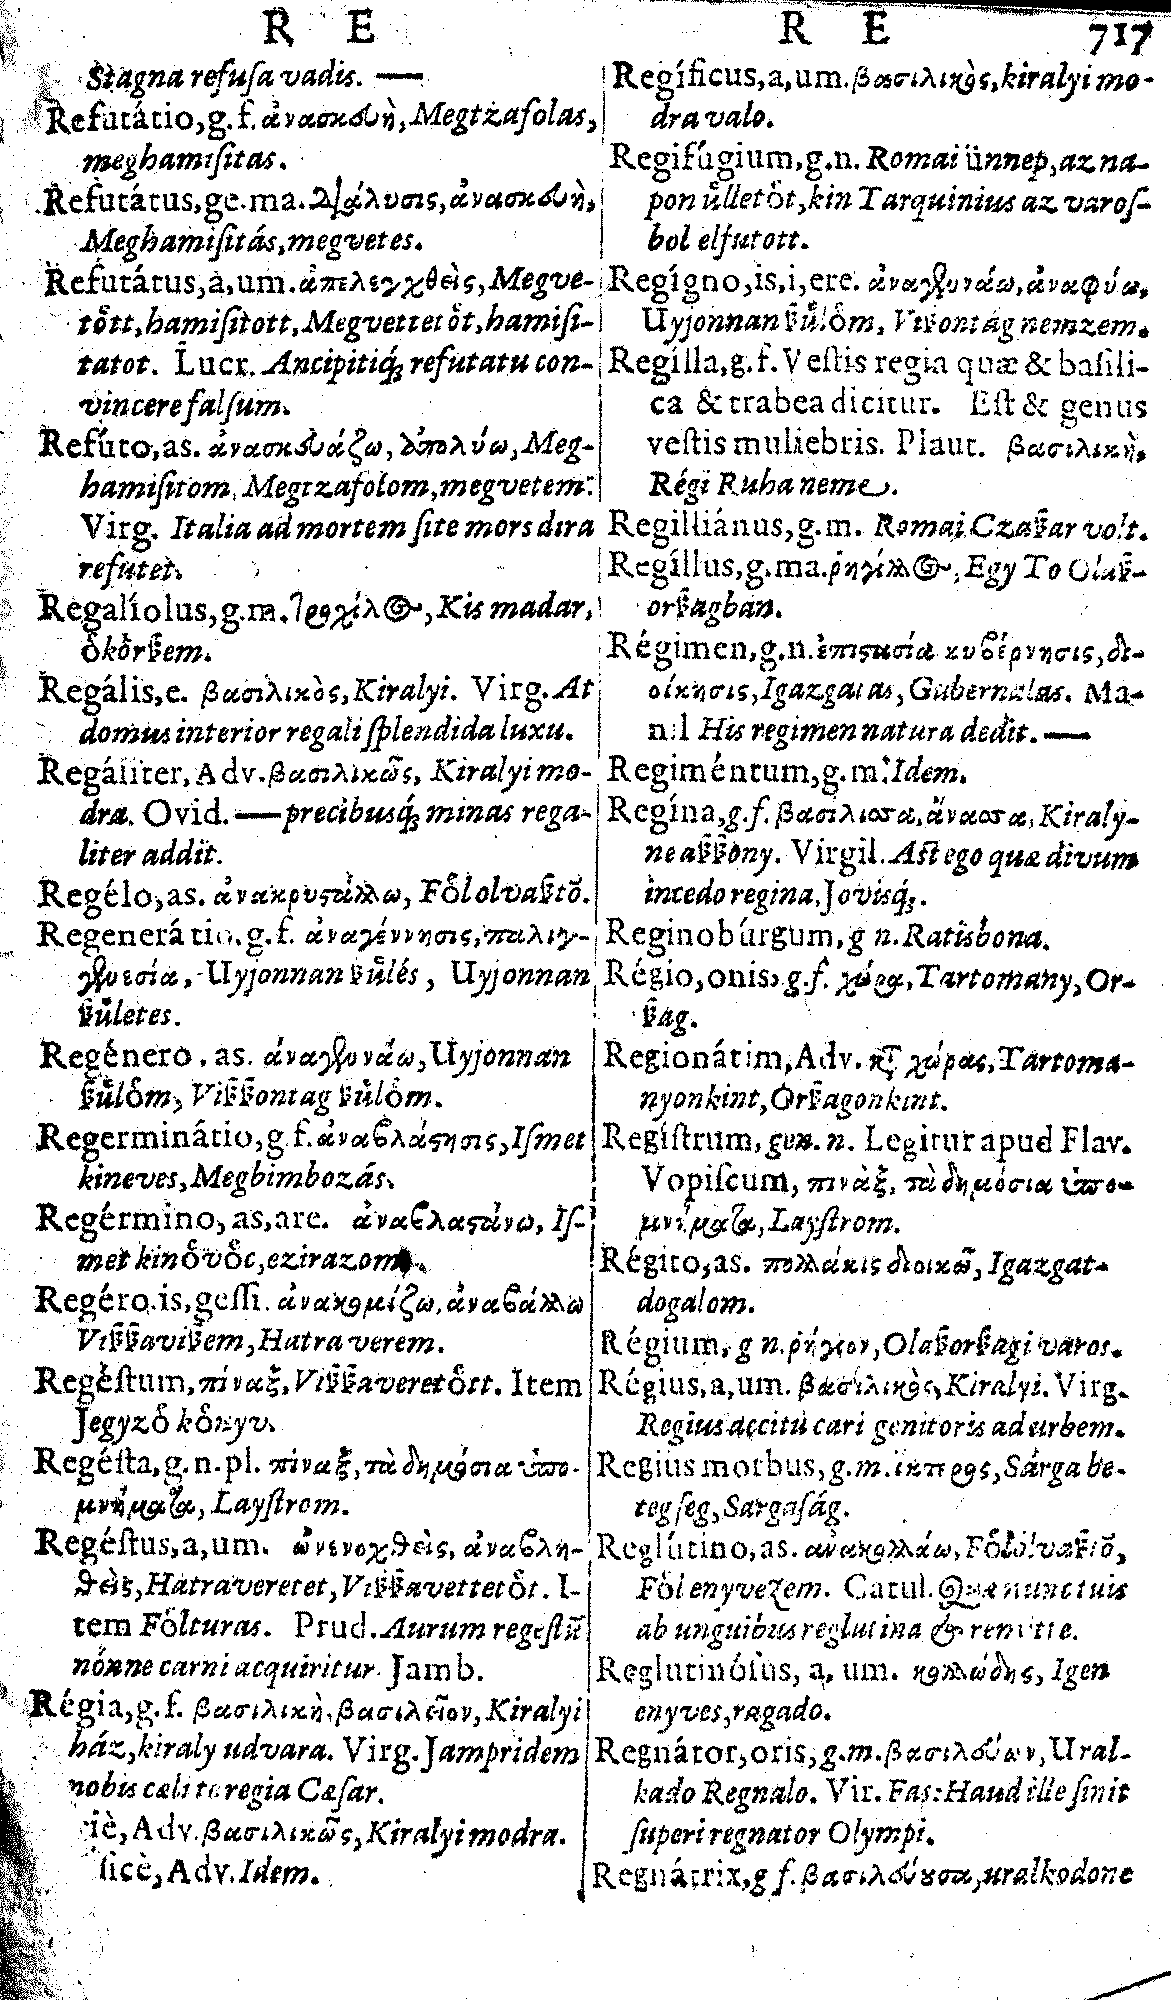 R E R E 717
Stagna refuſa vadis. —
Refutátio, g. f. ἀνασκευὴ, Megtzafolas,
meghamiſitas.
Refutátus, ge. ma. διάλυσις, ἀνασκευὴ,
Meghamiſitás, megvetes.
Refutátus, a, um. ἀπελεγχθεὶς, Megve-
tött, hamiſitott, Megvettetöt, hamiſi-
tatot. Lucr. Ancipitiq; refutatu con-
vincere falſum.
Refúto, as. ἀνασκευάζω, ἀπολύω, Meg-
hamiſitom, Megtzafolom, megvetem:
Virg. Italia ad mortem ſite mors dira
refutet.
Regalíolus, g. m. τροχίλος, Kis madar,
ökörßem.
Regális, e. βασιλικὸς, Kiralyi. Virg. At
domus interior regali ſplendida luxu.
Regáliter, Adv. βασιλικῶς, Kiralyi mo-
dra. Ovid. — precibusq; minas rega-
liter addit.
Regélo, as. ἀνακρυστάλλω, Föl olvaßtö.
Regenerátio. g. f. ἀναγέννησις, παλιγ-
γενεσία, Uyjonnan ßülés, Uyjonnan
ßületes.
Regénero, as. ἀναγεννάω, Uyjonnan
ßülöm, Vißßontag ßülöm.
Regerminátio, g f. ἀναβλάστησις, Iſmet
kineves, Megbimbozás.
Regérmino, as, are. ἀναβλαστάνω, Iſ-
met kinövöc, ezirazom.
Regéro, is, geſſi. ἀνακομίζω, ἀναβάλλω
Vißßavißem, Hatra verem.
Regéſtum, πίναξ, Vißßaveretött. Item
Jegyzö könyv.
Regéſta, g. n. pl. πίναξ, τὰ δημόσια ὑπο-
μνήματα, Layſtrom.
Regéſtus, a, um. ἀνενοχθεὶς, ἀναβλη-
θεὶς, Hatraveretet, Vißßavettetöt. I-
tem Fölturas. Prud. Aurum regeſtũ
nónne carni acquiritur. Jamb.
Régia, g. f. βασιλικὴ, βασιλεῖον, Kiralyi
ház, kiraly udvara. Virg. Jampridem
nobis cæli te regia Cæſar.
iè, Adv. βασιλικῶς, Kiralyi modra.
ficè, Adv. Idem.
Regíficus, a, um. βασιλικὸς, kiralyi mo-
dra valo.
Regifúgium, g. n. Romai ünnep, az na-
pon ülletöt, kin Tarquinius az varoſ-
bol elfutott.
Regígno, is, i, ere. ἀναγεννάω, ἀναφύω,
Uyjonnan ßülöm, Vißontag nemzem.
Regílla, g. f. Veſtis regia quæ & baſili-
ca & trabea dicitur. Eſt & genus
veſtis muliebris. Plaut. βασιλικὴ,
Régi Ruha neme.
Regilliánus, g. m. Romai Czaßar volt.
Regíllus, g. ma. ῥηγίλλος, Egy To Olaß-
orßagban.
Régimen, g. n. ἐπιστασία κυβέρνησις, δι-
οίκησις, Igazgatas, Gubernalas. Ma-
nil His regimen natura dedit. —
Regiméntum, g. m. Idem.
Regína, g. f. βασίλισσα, ἄνασσα, Kiraly-
ne aßßony. Virgil. Aſt ego quæ divum
incedo regina, Jovisq;.
Reginobúrgum, g n. Ratisbona.
Régio, onis, g. f. χώρα, Tartomany, Or-
ßag.
Regionátim, Adv. κατὰ χώρας, Tartoma-
nyonkint, Orßagonkint.
Regíſtrum, gen. n. Legitur apud Flav.
Vopiſcum, πινὰξ, τὰ δημόσια ὑπο-
μνήματα, Layſtrom.
Régito, as. πολλάκις διοικῶ, Igazgat-
dogalom.
Régium, g n. ῥήγιον, Olaßorßagi varos.
Régius, a, um. βασιλικὸς, Kiralyi. Virg.
Regius accitu cari genitoris ad urbem.
Regius morbus, g. m. ἴκτερος, Sárga be-
tegſeg, Sargaſág.
Reglútino, as. ἀνακολλάω, Fölolvaßtö,
Föl enyvezem. Catul. Quæ nunc tuis
ab unguibus reglutina & remitte.
Reglutinóſus, a, um. κολλώδης, Igen
enyves, ragado.
Regnátor, oris, g. m. βασιλεύων, Ural-
kado Regnalo. Vir. Fas: Haud ille ſinit
ſuperi regnator Olympi.
Regnátrix, g f. βασιλεύουσα, uralkodone